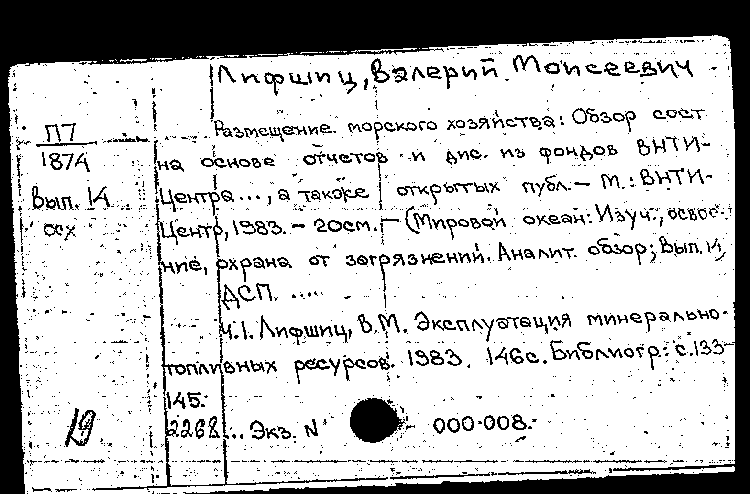 Лифшиц, Валерий Моисеевич
П7
1874
Вып. 14
осх
Размещение морского хозяйства: Обзор сост
на основе отчетов и дис. из фондов ВНТИ-
Центра..., а также открытых публ. – М.: ВНТИ-
Центр, 1983. – 20см. – (Мировой океан: Изуч., освое-
ние, охрана от загрязнений. Аналит. обзор; Вып. 14,
ДСП. .....
Ч.1. Лифшиц, В.М. Эксплуатация минерально-
топливных ресурсов. 1983. 146с. Библиогр.: с.133-
145.
19
2268... Экз. N 000-008.-